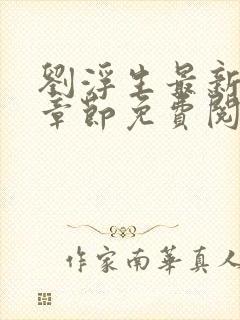 劉浮生最新
章節免費閱
作家南華真人